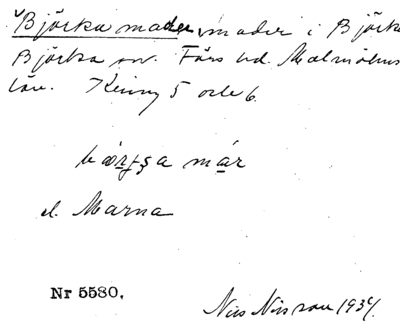 Björka mader, mader i Björka
Björka sn. Färs hd. Malmöhus
län. Keiny 5 och 6.
mar
el. Marna
Nr 5580.
Nils Nilsson 1934.